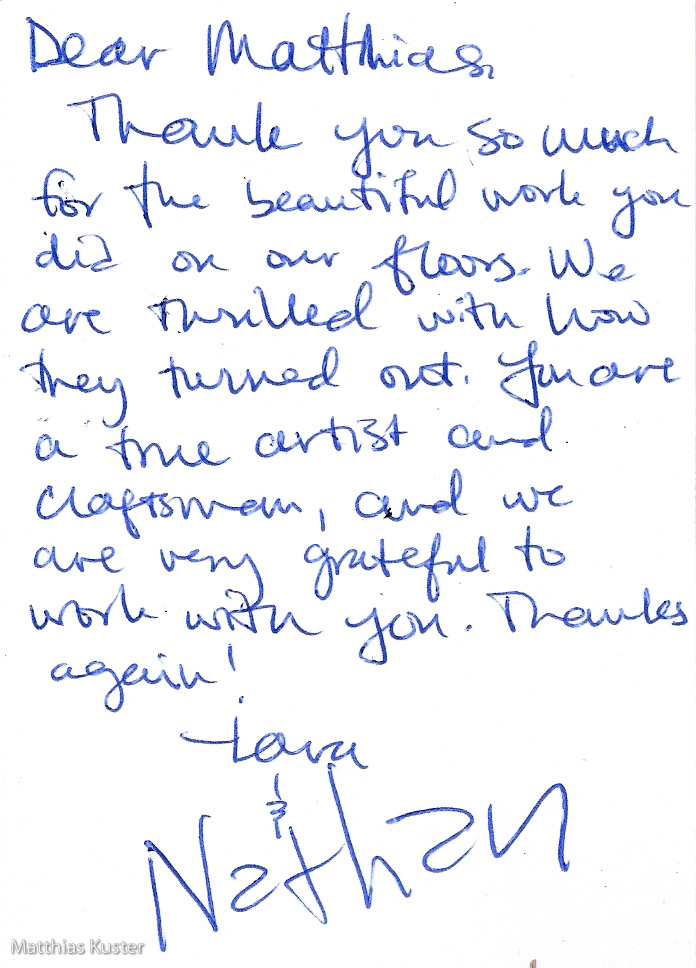 Dear Matthias,
Thank you so much
for the beautiful work you
did on our floors. We
are thrilled with how
they turned out. You are
a true artist and
craftsman, and we
are very grateful to
work with you. Thanks
again!
&
Nathan
Matthias Kuster